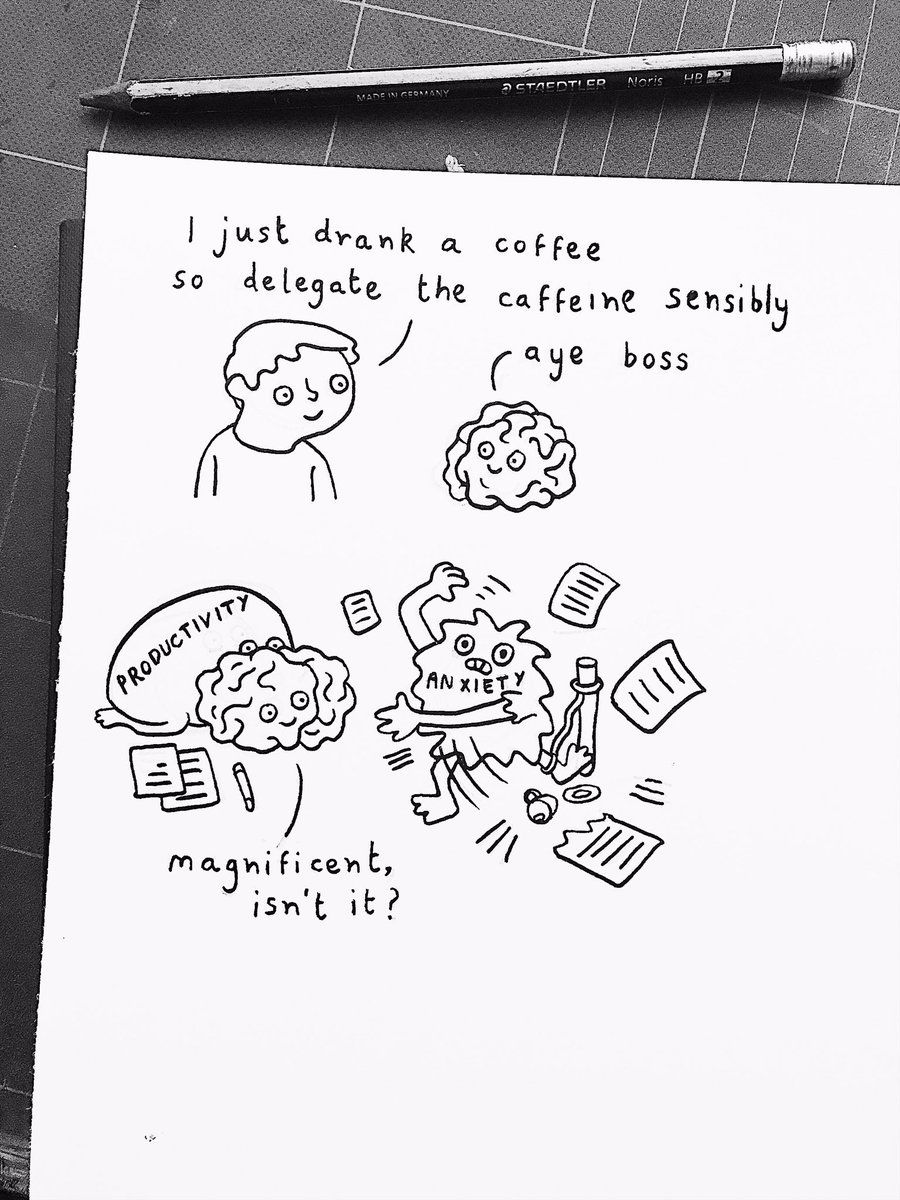 MADE IN GERMANY STAEDTLER Noris HB 2
I just drank a coffee
so delegate the caffeine sensibly
aye boss
PRODUCTIVITY
ANXIETY
magnificent,
isn't it?